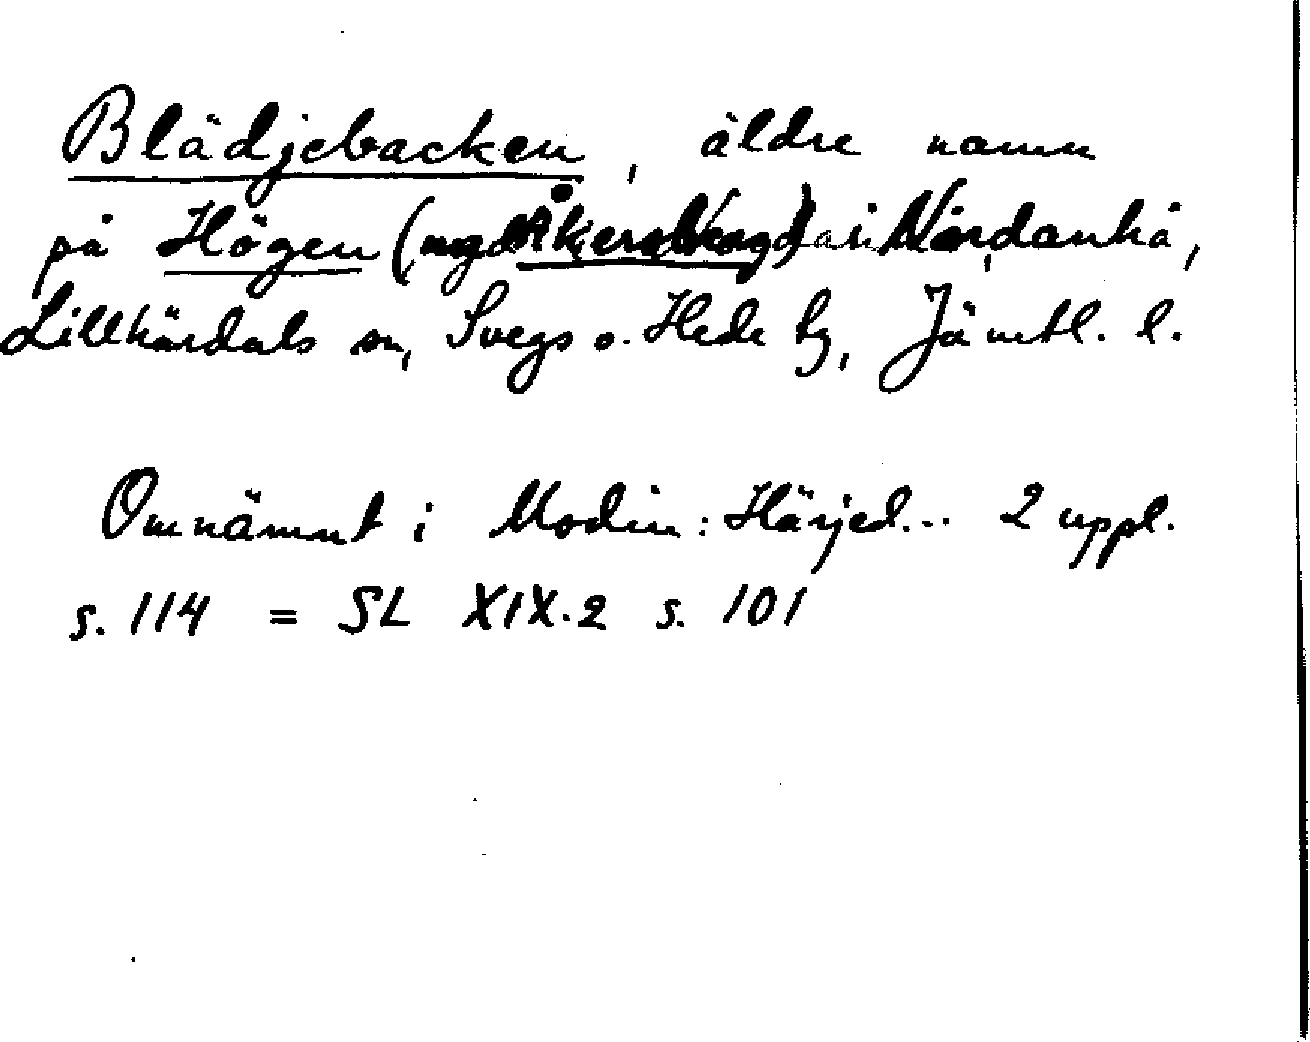 Blädjebacken, äldre namn
på Högen ( i Nordanhå,
Lillhärdals sn, Svegs o. Hede tg, Jämtl. l.
Omnämnt i Modin: Härjed... 2 uppl.
s. 114 = SL XIX.2 s. 101